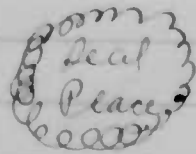 Seal
Peace